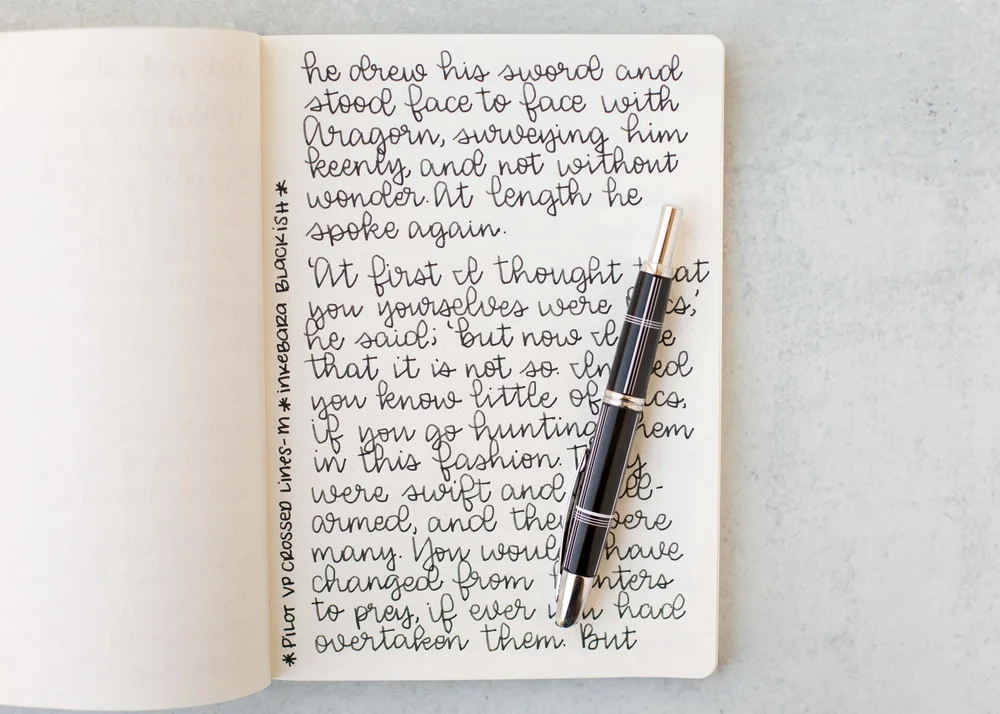 he drew his sword and
stood face to face with
Aragorn, surveying him
keenly, and not without
wonder. At length he
spoke again.
'At first I thought that
you yourselves were
he said; 'but now I
that it is not so. Indeed
you know little of
if you go hunting them
in this fashion. They
were swift and well-
armed, and they were
many. You would have
changed from hunters
to prey, if ever you had
overtaken them. But
*PILOT VP CROSSED LINES-M *INKEBARA BLACKISH*